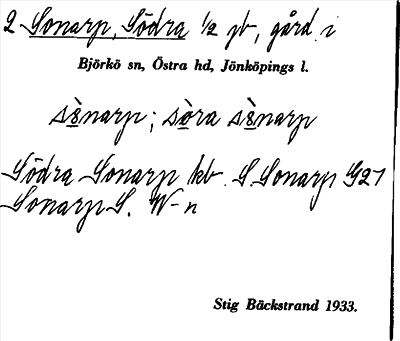 2 Sonarp, Södra 1/2 jb, gård i
Björkö sn, Östra hd, Jönköpings l.
sǹnarp; sòra sǹnarp
Södra Sonarp kb. S. Sonarp G27
Sonarp S. W-n
Stig Bäckstrand 1933.